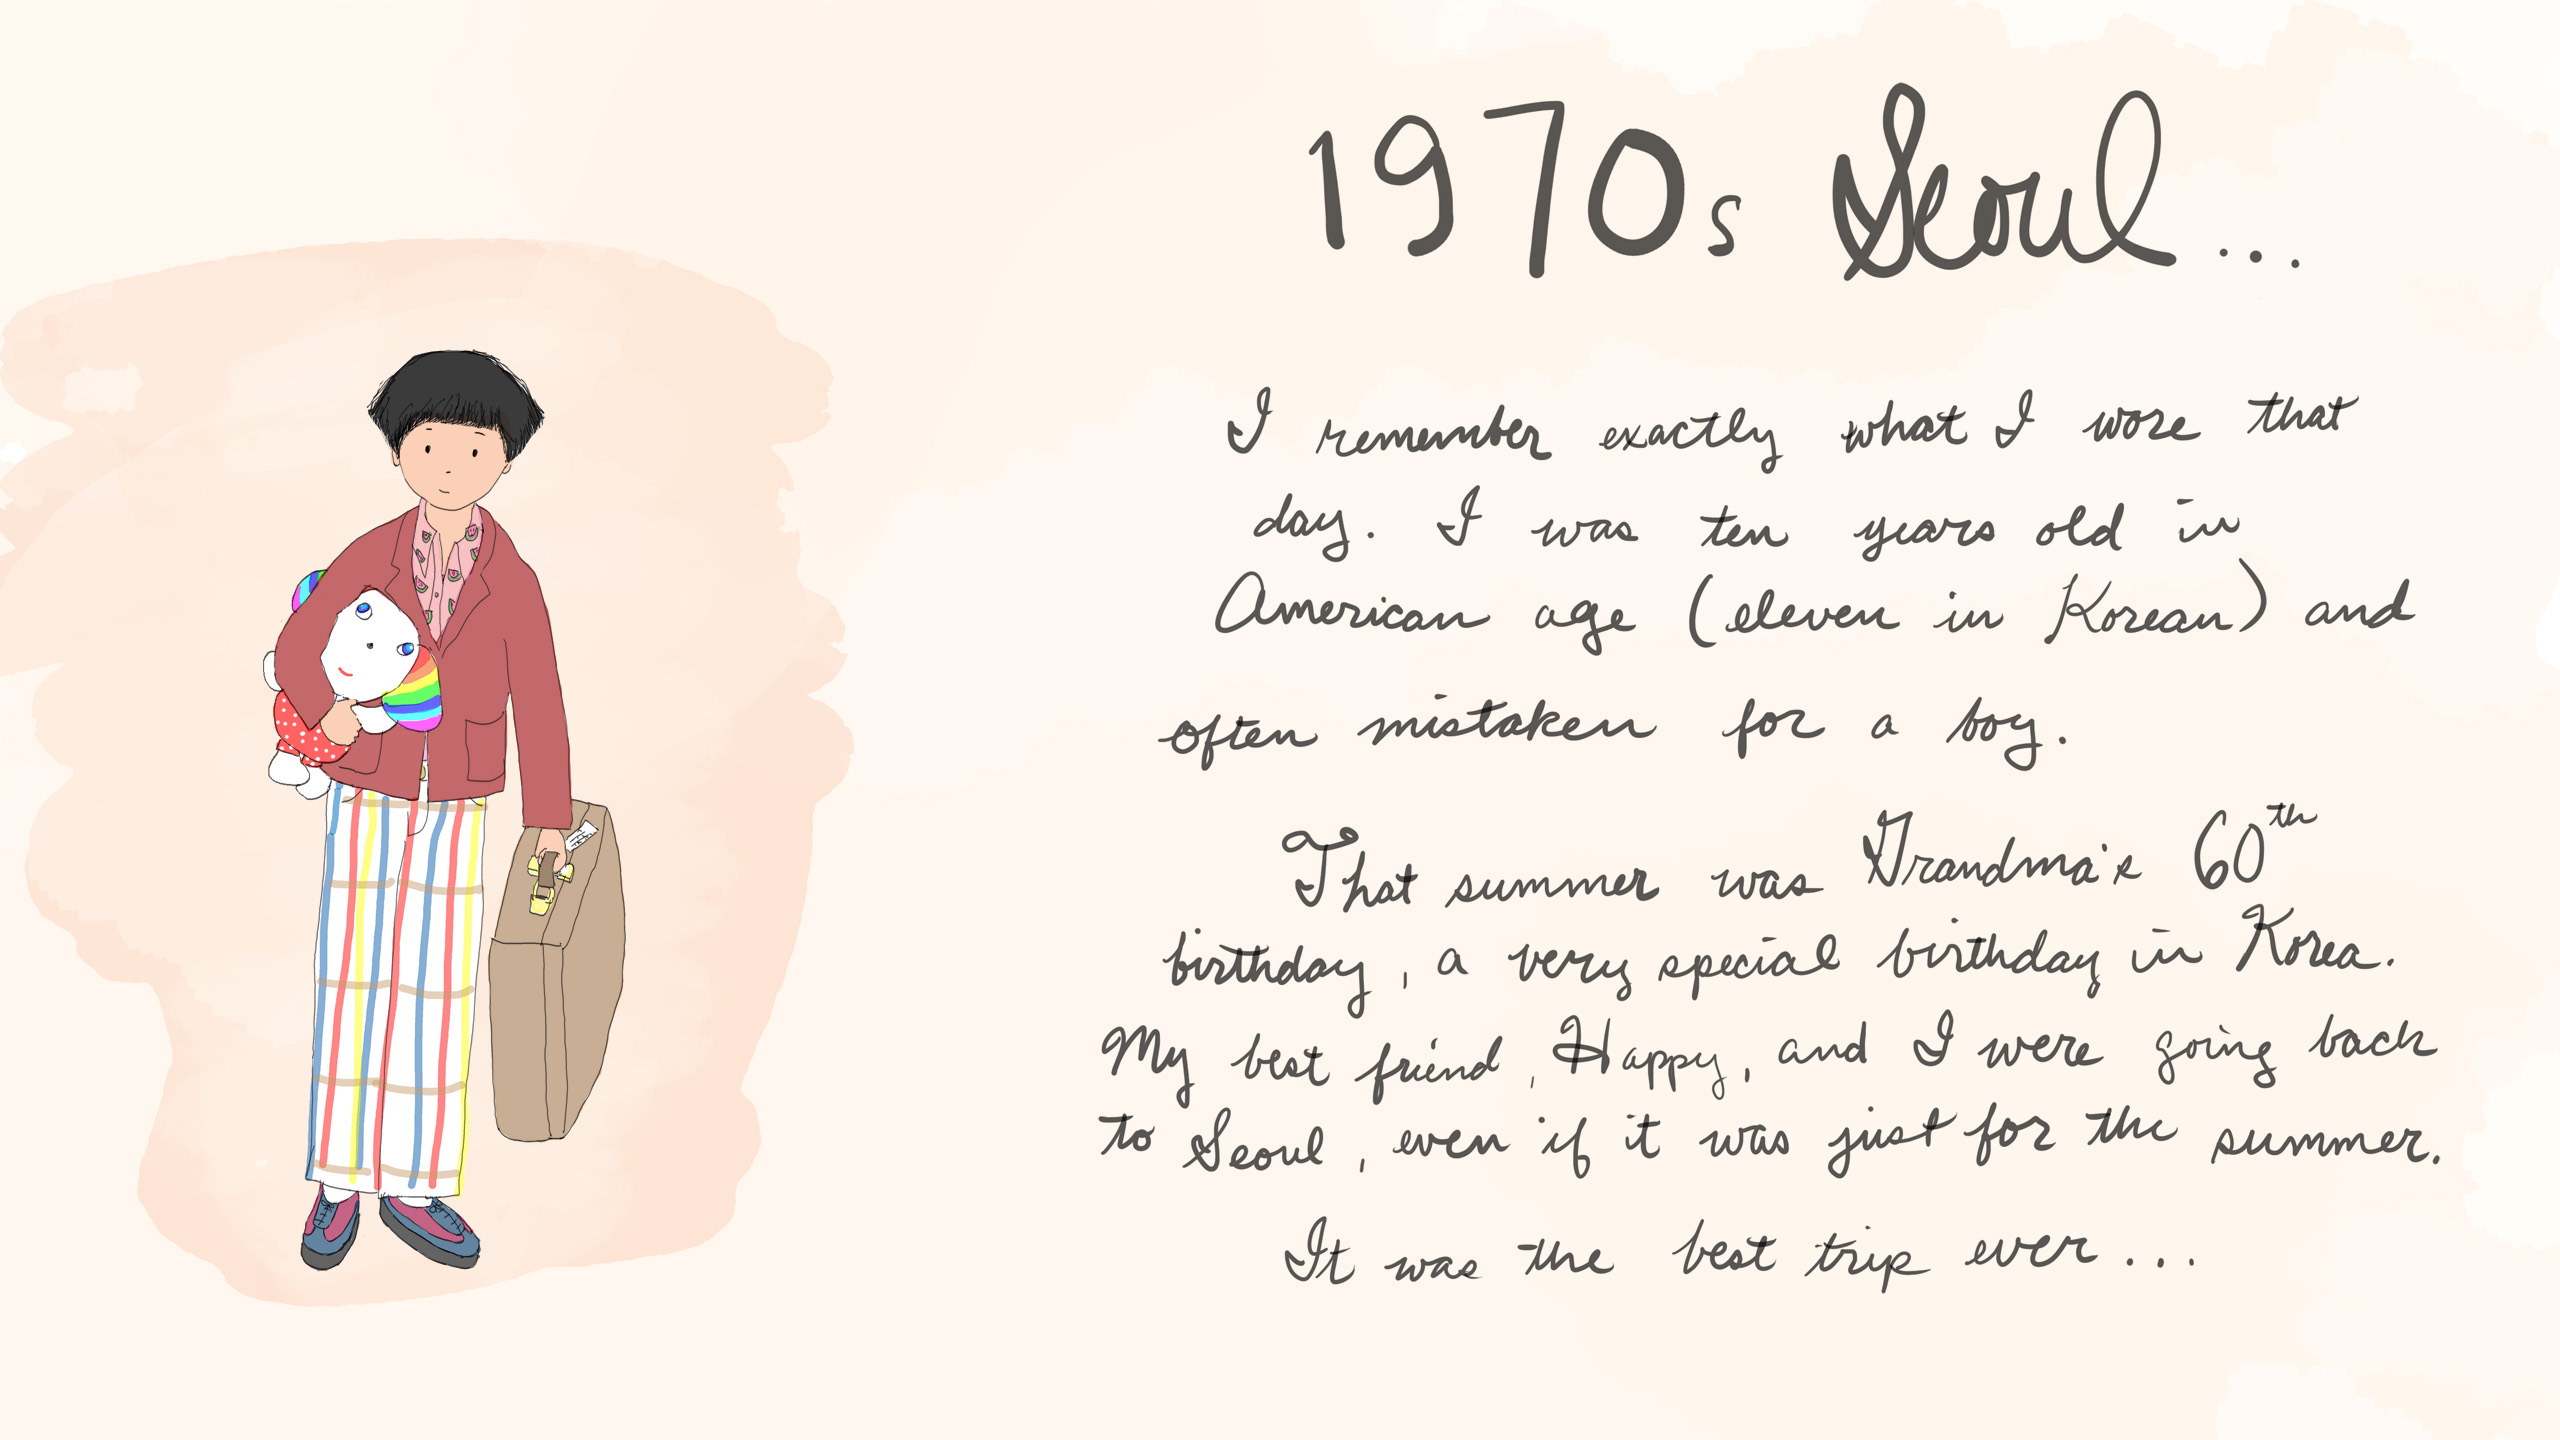 1970s Seoul...
I remember exactly what I wore that
day. I was ten years old in
American age (eleven in Korean) and
often mistaken for a boy.
That summer was Grandma's 60th
birthday, a very special birthday in Korea.
My best friend, Happy, and I were going back
to Seoul, even if it was just for the summer.
It was the best trip ever...